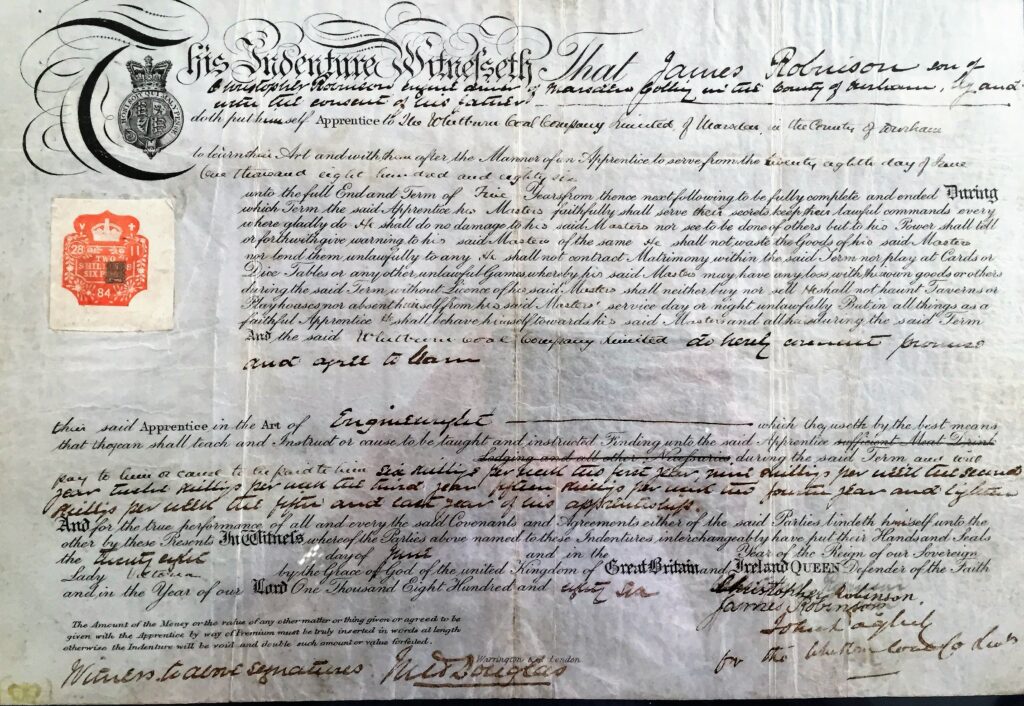 This Indenture Witnesseth That James Robinson son of
Christopher Robinson engine driver of Marsden Colliery in the County of Durham, by and
with the consent of his father,
doth put himself Apprentice to The Whitburn Coal Company Limited, of Marsden, in the County of Durham
to learn their Art and with them after the Manner of an Apprentice to serve from the twenty eighth day of June
One thousand eight hundred and eighty six
unto the full End and Term of Five Years from thence next following to be fully complete and ended During
which Term the said Apprentice his Masters faithfully shall serve their secrets keep their lawful commands every
where gladly do He shall do no damage to his said Masters nor see to be done of others but to his Power shall tell
or forthwith give warning to his said Masters of the same He shall not waste the Goods of his said Masters
nor lend them unlawfully to any He shall not contract Matrimony within the said Term nor play at Cards or
Dice Tables or any other unlawful Games whereby his said Masters may have any loss with his own goods or others
during the said Term without Licence of his said Masters shall neither buy nor sell He shall not haunt Taverns or
Playhouses nor absent himself from his said Masters' service day or night unlawfully But in all things as a
faithful Apprentice he shall behave himself towards his said Masters and all his during the said Term
And the said Whitburn Coal Company Limited do hereby covenant promise
and agree to learn
28 11
TWO
SHILLINGS
SIX
84
their said Apprentice in the Art of Enginewright which they useth by the best means
that they can shall teach and Instruct or cause to be taught and instructed Finding unto the said Apprentice sufficient Meat Drink
Lodging and all other Necessaries during the said Term and will
pay to him or cause to be paid to him Six shillings per week the first year, nine shillings per week the second
year twelve shillings per week the third year fifteen shillings per week the fourth year and Eighteen
shillings per week the fifth and last year of his apprenticeship.
And for the true performance of all and every the said Covenants and Agreements either of the said Parties bindeth himself unto the
other by these Presents In Witness whereof the Parties above named to these Indentures interchangeably have put their Hands and Seals
the twenty eight day of June and in the Year of the Reign of our Sovereign
Lady Victoria by the Grace of God of the united Kingdom of Great Britain and Ireland QUEEN Defender of the Faith
and in the Year of our Lord One Thousand Eight Hundred and eighty six
Christopher Robinson
James Robinson
John
for the Whitburn Coal Co Ltd
The Amount of the Money or the value of any other matter or thing given or agreed to be
given with the Apprentice by way of Premium must be truly inserted in words at length
otherwise the Indenture will be void and double such amount or value forfeited.
Warrington and London
Witness to above signatures Douglas